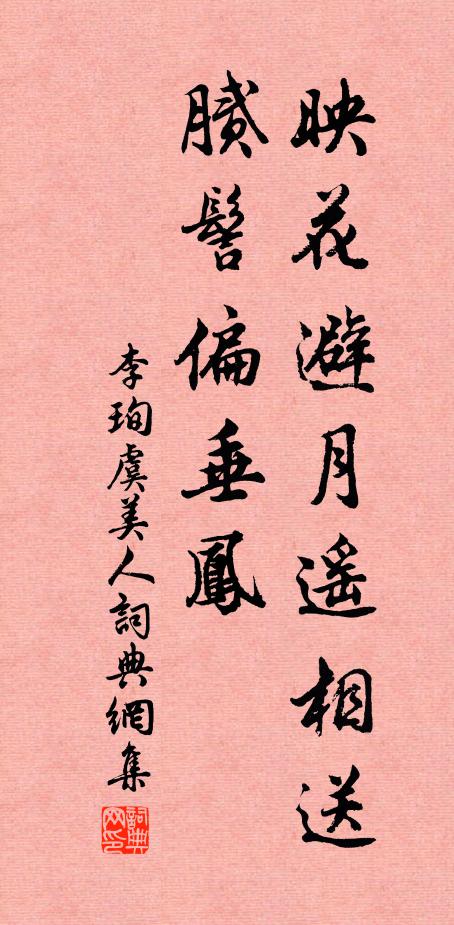 映花避月遥相送
膩髻偏垂鳳
李珣虞美人詞典網集
詞典网印